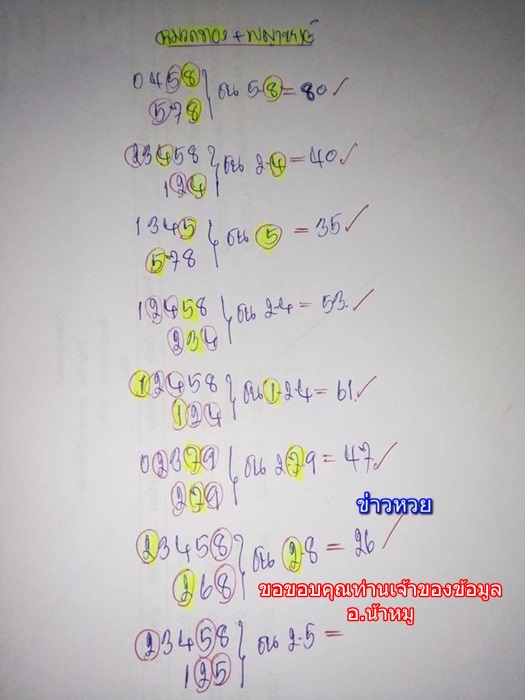 หมวดทอง + พญาชาร์
0458
578
ชน 5-8 = 80 ✓
23458
124
ชน 2-4 = 40 ✓
1345
578
ชน 5 = 35 ✓
12458
234
ชน 2-4 = 53. ✓
12458
124
ชน 1-2-4 = 61. ✓
02379
279
ชน 2-79 = 47 ✓
ข่าวหวย
23458
268
ชน 2-8 = 26 ✓
ขอขอบคุณท่านเจ้าของข้อมูล
อ.น้าหมู
23458
125
ชน 2-5 =